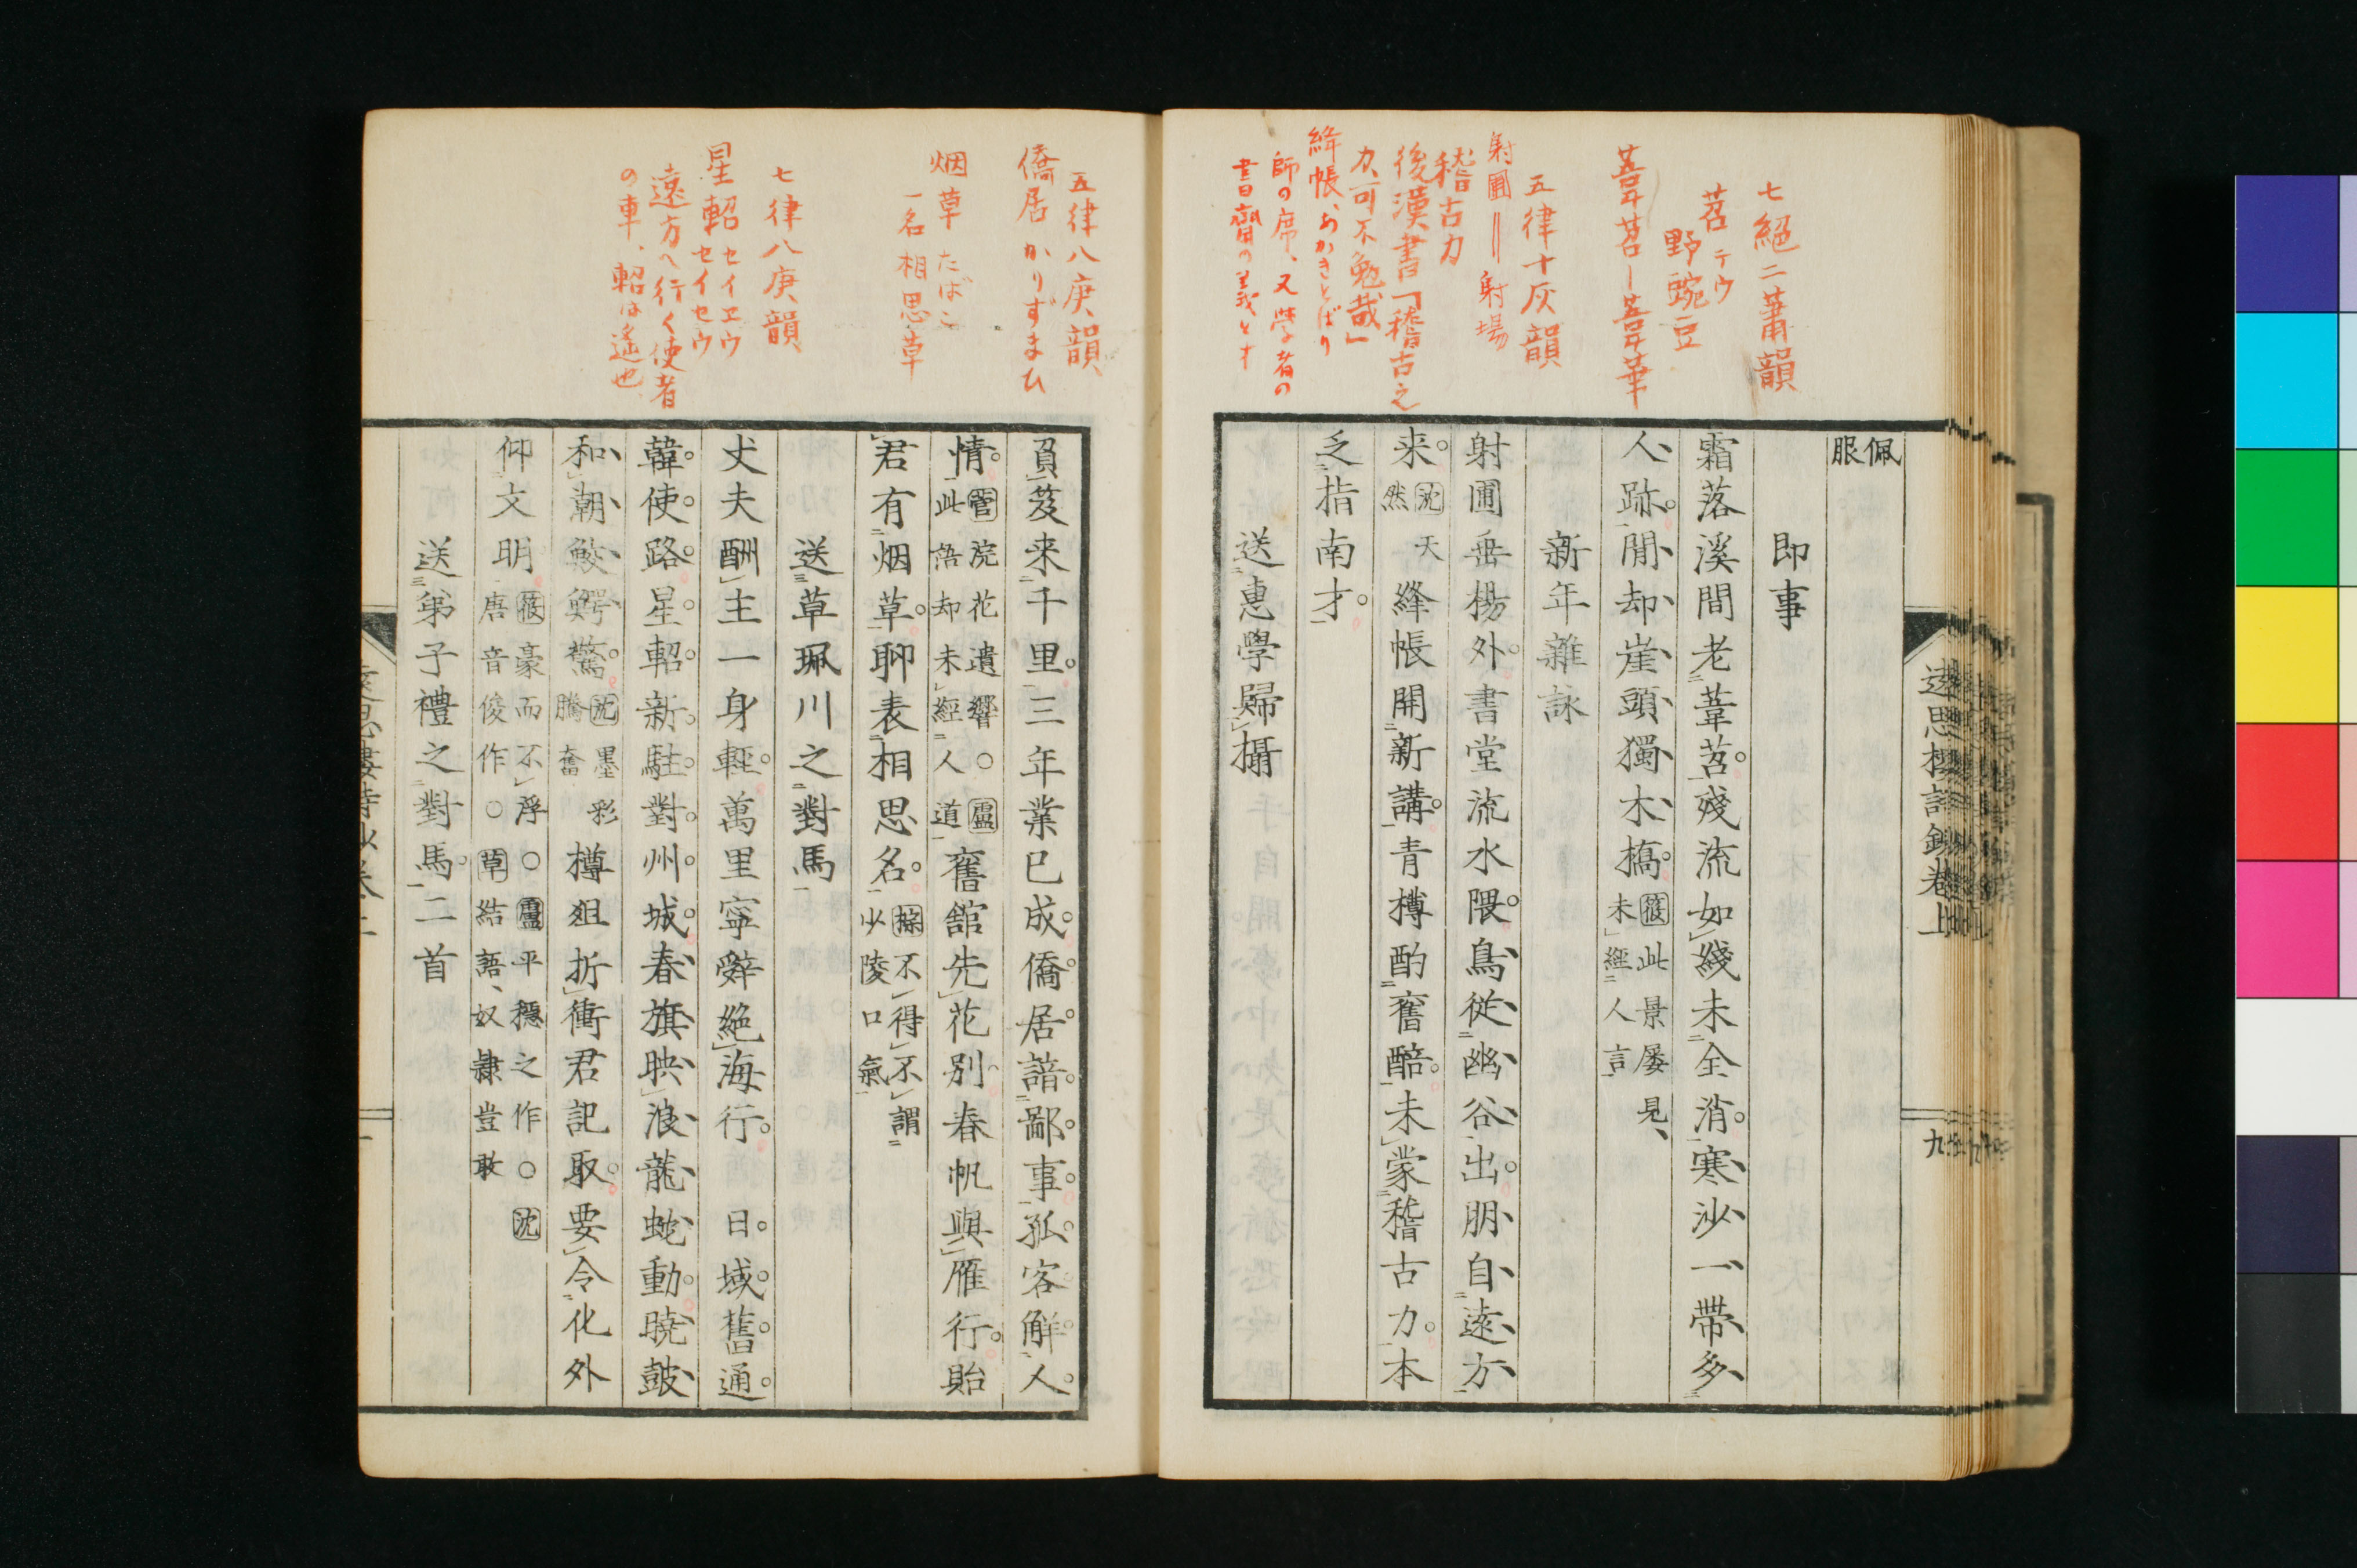 七絕二蕭韻
苕 テウ
野豌豆
葦苕ー葦華
五律十灰韻
射圃＝射場
稽古力
後漢書「稽古之
力、可不勉哉」
絳帳、あかきとばり
師の席、又学者の
書齋の義とす
遠思樓詩鈔卷上
九
佩
服
即事
霜落溪間老葦苕。殘流如綫未全消。寒沙一帶多
人跡。閒却崖頭獨木橋。
筱此景屢見、
未經人言
新年雜詠
射圃垂楊外。書堂流水隈。鳥從幽谷出。朋自遠方
来。
沈天
然
絳帳開新講。青樽酌舊醅。未蒙稽古力。本
乏指南才。
送惠學歸攝
五律八庚韻
僑居 かりずまひ
烟草 たばこ
一名相思草
七律八庚韻
星軺 セイエウ
セイセウ
遠方へ行く使者
の車、軺は遙也
負笈来千里。三年業已成。僑居諳鄙事。孤客解人
情。
菅浣花遺響○盧
此語却未經人道
舊舘先花別。春帆與雁行。貽
君有烟草。聊表相思名。
不得不謂
少陵口氣
送草珮川之對馬
丈夫酬主一身輕。萬里寧辭絕海行。日域舊通
韓使路。星軺新駐對州城。春旗映浪龍蛇動。曉鼓
和潮鮫鰐驚。
沈墨彩
騰奮
樽俎折衝君記取。要令化外
仰文明
筱豪而不浮○盧平穩之作○沈
唐音俊作○草結語、奴隸豈敢
送弟子禮之對馬。二首